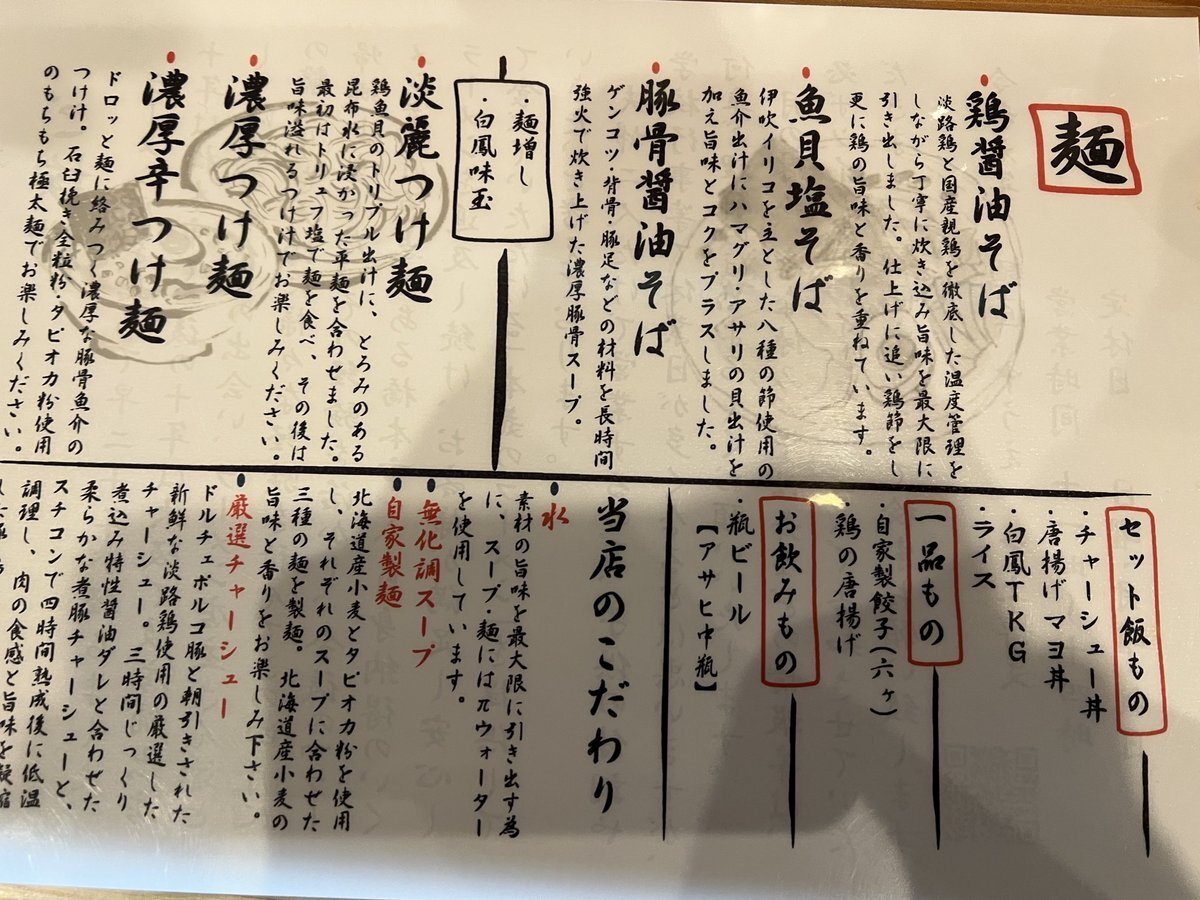 麺
鶏醤油そば
淡路鶏と国産親鶏を徹底した温度管理を
しながら丁寧に炊き込み旨味を最大限に
引き出しました。仕上げに追い鶏節をし
更に鶏の旨味と香りを重ねています。
魚貝塩そば
伊吹イリコを主とした八種の節使用の
魚介出汁にハマグリ・アサリの貝出汁を
加え旨味とコクをプラスしました。
豚骨醤油そば
ゲンコツ・背骨・豚足などの材料を長時間
強火で炊き上げた濃厚豚骨スープ。
・麺増し
・白鳳味玉
淡麗つけ麺
鶏魚貝のトリプル出汁に、とろみのある
昆布水に浸かった平麺を合わせました。
最初はトリュフ塩で麺を食べ、その後は
旨味溢れるつけ汁でお楽しみください。
濃厚つけ麺
濃厚辛つけ麺
ドロッと麺に絡みつく濃厚な豚骨魚介の
つけ汁。石臼挽き全粒粉・タピオカ粉使用
のもちもち極太麺でお楽しみください。
セット飯もの
・チャーシュー丼
・唐揚げマヨ丼
・白鳳TKG
・ライス
一品もの
・自家製餃子(六ヶ)
・鶏の唐揚げ
お飲みもの
・瓶ビール
【アサヒ中瓶】
当店のこだわり
水
素材の旨味を最大限に引き出す為
に、スープ・麺にはπウォーター
を使用しています。
無化調スープ
自家製麺
北海道産小麦とタピオカ粉を使用
し、それぞれのスープに合わせた
三種の麺を製麺。北海道産小麦の
旨味と香りをお楽しみ下さい。
厳選チャーシュー
ドルチェポルコ豚と朝引きされた
新鮮な淡路鶏使用の厳選した
チャーシュー。三時間じっくり
煮込み特性醤油ダレと合わせた
柔らかな煮豚チャーシューと、
スチコンで四時間熟成後に低温
調理し、肉の食感と旨味を凝縮